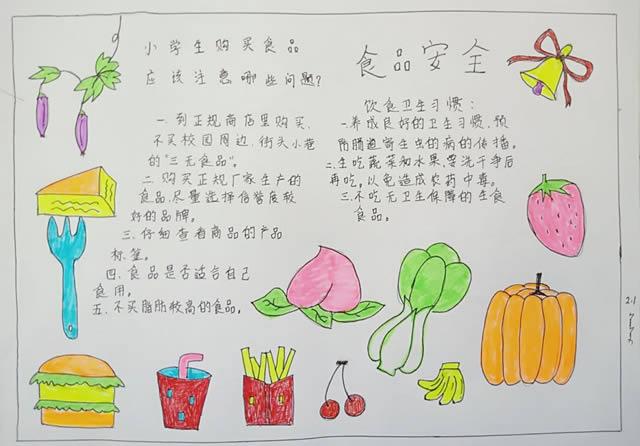 小学生购买食品
应该注意哪些问题?
一.到正规商店里购买,
不买校园周边、街头小巷
的"三无食品"。
二.购买正规厂家生产的
食品,尽量选择信誉度较
好的品牌。
三.仔细查看商品的产品
标签。
四.食品是否适合自己
食用。
五.不买脂肪较高的食品。
食品安全
饮食卫生习惯:
一.养成良好的卫生习惯,预
防肠道寄生虫的病的传播。
二.生吃蔬菜和水果,要洗干净后
再吃,以免造成农药中毒。
三.不吃无卫生保障的生食
食品。
2.1